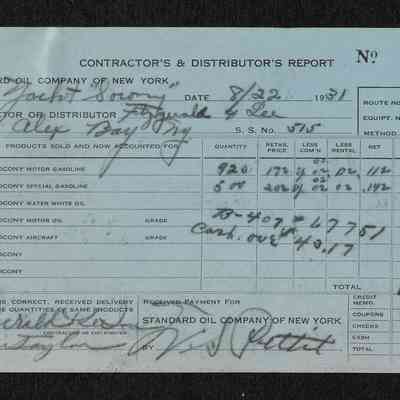 CONTRACTOR'S & DISTRIBUTOR'S REPORT Nº
ARD OIL COMPANY OF NEW YORK
Yacht "Socony" DATE 8/22 1931
ROUTE NO
CTOR OR DISTRIBUTOR Fitzgerald & Lee
EQUIPT. N
Alex Bay Ny S. S. No. 515
METHOD
PRODUCTS SOLD AND NOW ACCOUNTED FOR QUANTITY RETAIL PRICE LESS COM'N LESS RENTAL NET
OCONY MOTOR GASOLINE 920 172 02 02 .112
OCONY SPECIAL GASOLINE 500 202 02 02 .142
OCONY WATER WHITE OIL
OCONY MOTOR OIL GRADE 407 67751
OCONY AIRCRAFT GRADE Cash over 40.17
OCONY
OCONY
TOTAL
IS CORRECT, RECEIVED DELIVERY
E QUANTITIES OF SAME PRODUCTS
RECEIVED PAYMENT FOR
STANDARD OIL COMPANY OF NEW YORK
CONTRACTOR OR DISTRIBUTOR
BY Pettit
CREDIT MEMO.
COUPONS
CHECKS
CASH
TOTAL